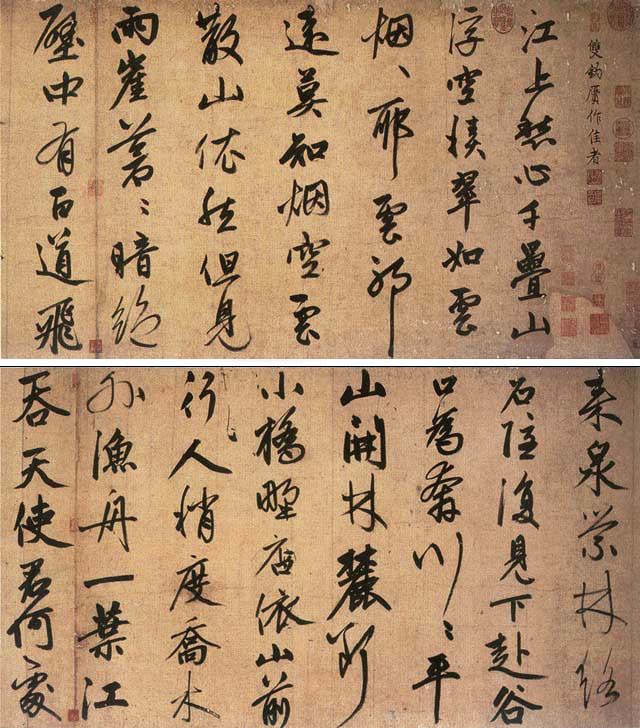 雙鈎贋作佳者
江上愁心千疊山
浮空積翠如雲
烟〻耶雲耶
遠莫知烟空雲
散山依然但見
兩崖蒼〻暗絕
壁中有百道飛
來泉縈林絡
石隱復見下赴谷
口為奔川〻平
山開林麓斷
小橋野店依山前
行人稍度喬木
外漁舟一葉江
吞天使君何處